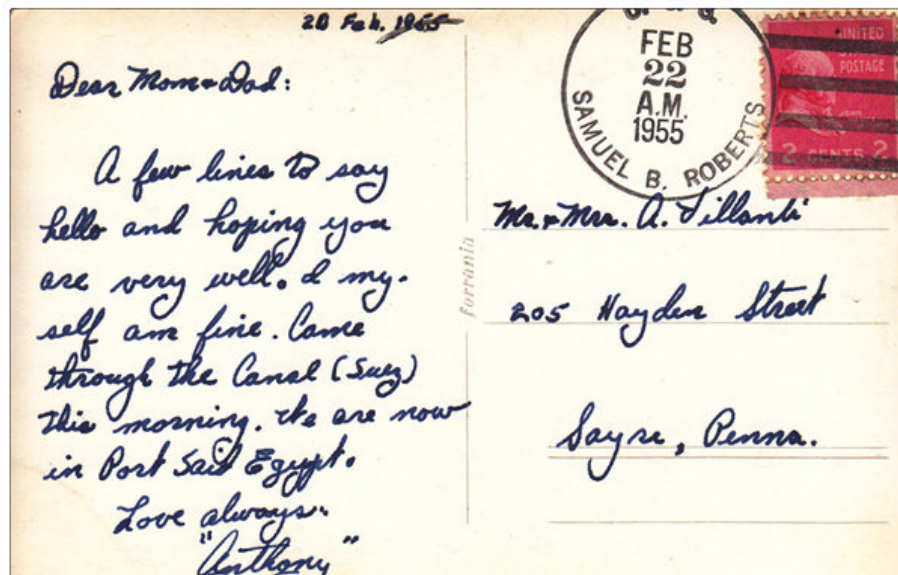 20 Feb. 1955
Dear Mom & Dad:
A few lines to say
hello and hoping you
are very well. I my-
self am fine. Came
through the Canal (Suez)
this morning. We are now
in Port Said Egypt.
Love always..
"Anthony"
forrania
FEB
22
A.M.
1955
SAMUEL B. ROBERTS
UNITED
POSTAGE
2 CENTS 2
Mr. & Mrs. A.
205 Hayden Street
Sayre, Penna.